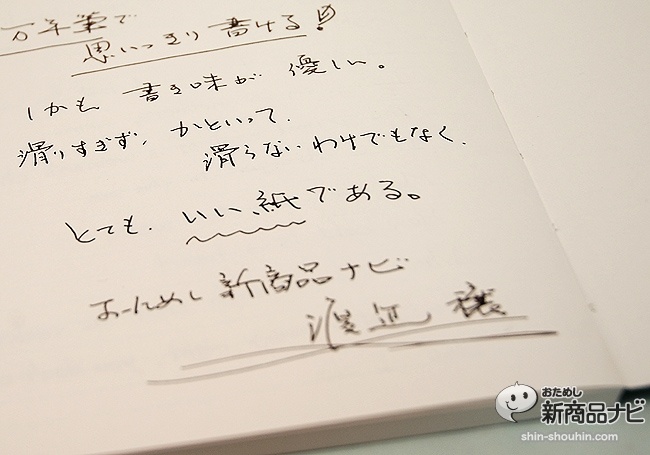 万年筆で
思いっきり書ける!!
しかも 書き味が 優しい。
滑りすぎず、かといって、
滑らないわけでもなく、
とても、いい紙である。
おためし新商品ナビ
渡辺 穣
おためし
新商品ナビ
shin-shouhin.com